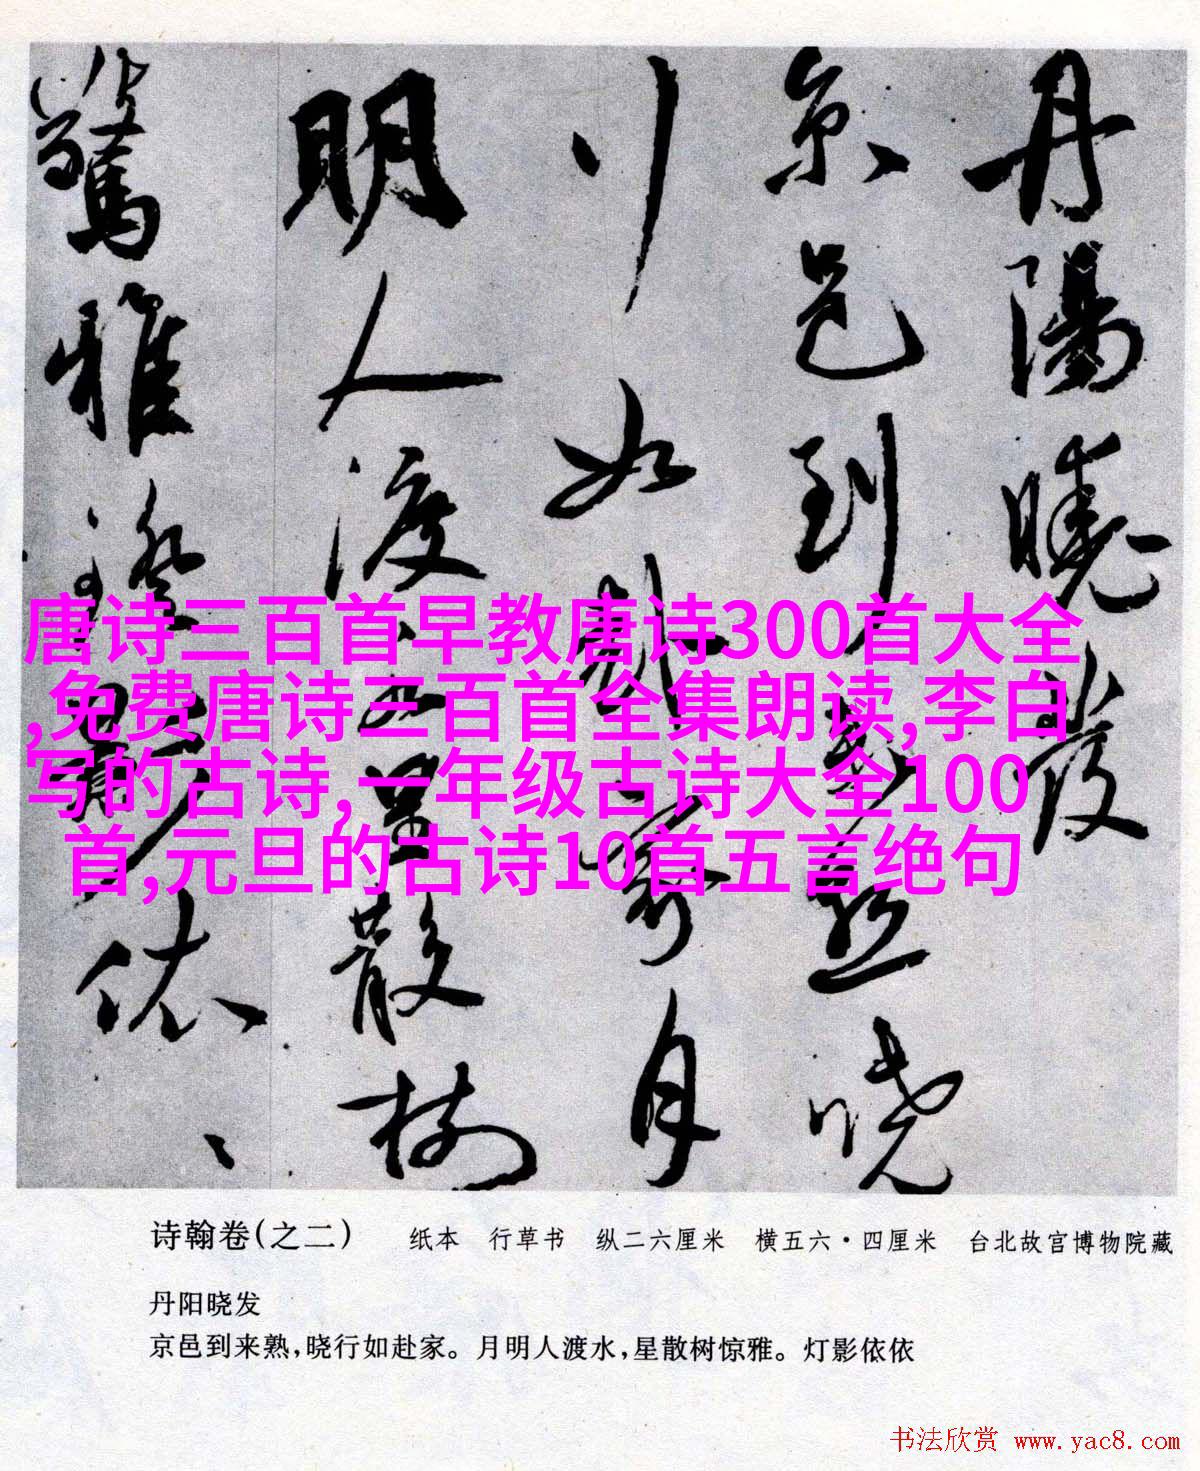 丹陽曉發
京邑到来熟曉
行如赴家月
明人渡水星散樹
驚雅燈影依、
唐诗三百首早教唐诗300首大全
,免费唐诗三百首全集朗读,李白
写的古诗,一年级古诗大全100
首,元旦的古诗10首五言绝句
诗翰卷(之二) 纸本 行草书 纵二六厘米 横五六·四厘米 台北故宫博物院藏
丹阳晓发
京邑到来熟,晓行如赴家。月明人渡水,星散树惊雅。灯影依依
书法欣赏 www.yac8.com